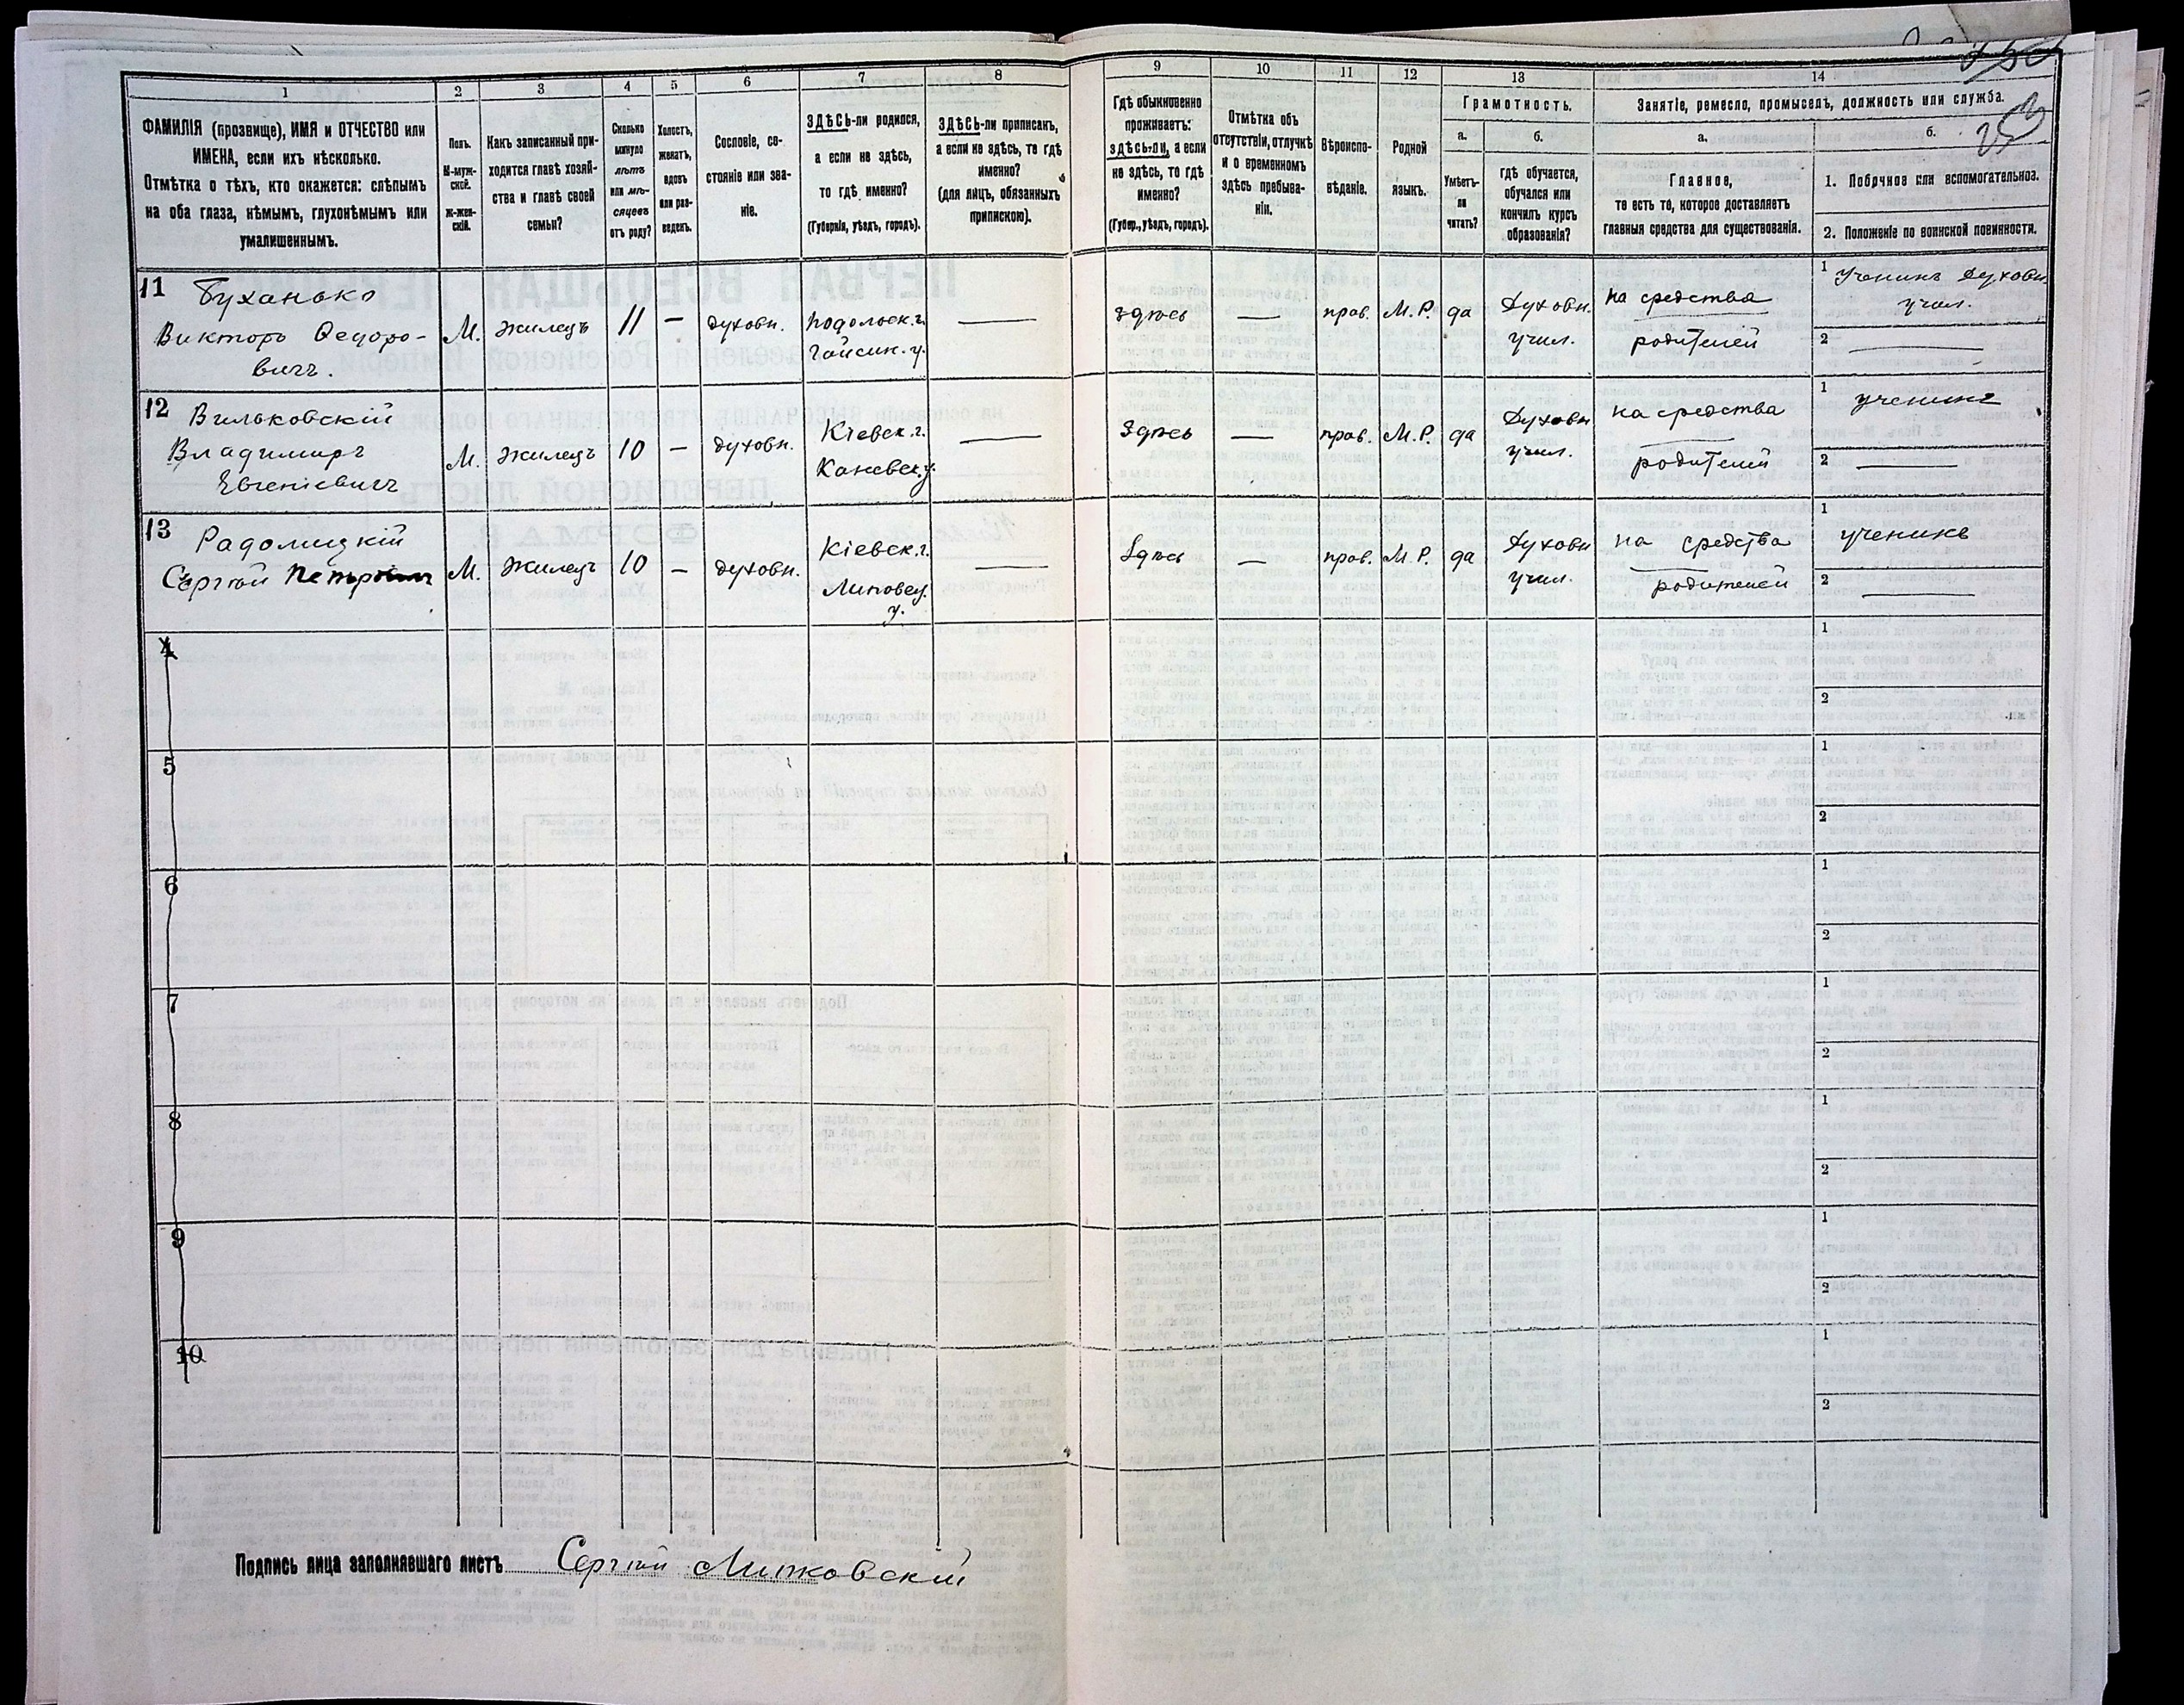 1 2 3 4 5 6 7 8 9 10 11 12 13 14
ФАМИЛІЯ (прозвище), ИМЯ и ОТЧЕСТВО или
ИМЕНА, если ихъ нѣсколько.
Отмѣтка о тѣхъ, кто окажется: слѣпымъ
на оба глаза, нѣмымъ, глухонѣмымъ или
умалишеннымъ.
Полъ.
М-муж-
ской.
Ж-жен-
скій.
Какъ записанный при-
ходится главѣ хозяй-
ства и главѣ своей
семьи?
Сколько
минуло
лѣтъ
или мѣ-
сяцевъ
отъ роду?
Холостъ,
женатъ,
вдовъ
или раз-
веденъ.
Сословіе, со-
стояніе или зва-
ніе.
ЗДѢСЬ-ли родился,
а если не здѣсь,
то гдѣ именно?
(Губернія, уѣздъ, городъ).
ЗДѢСЬ-ли приписанъ,
а если не здѣсь, то гдѣ
именно?
(для лицъ, обязанныхъ
припискою).
Гдѣ обыкновенно
проживаетъ:
здѣсь-ли, а если
не здѣсь, то гдѣ
именно?
(Губер., уѣздъ, городъ).
Отмѣтка объ
отсутствіи, отлучкѣ
и о временномъ
здѣсь пребыва-
ніи.
Вѣроиспо-
вѣданіе.
Родной
языкъ.
Грамотность.
а.
Умѣетъ-
ли
читать?
б.
гдѣ обучается,
обучался или
кончилъ курсъ
образованія?
Занятіе, ремесло, промыселъ, должность или служба.
а.
Главное,
то есть то, которое доставляетъ
главныя средства для существованія.
б.
1. Побочное или вспомогательное.
2. Положеніе по воинской повинности.
11 Буханько
Викторъ Ѳедоро-
вичъ.
М. жилецъ 11 — духовн.
Подольск. г.
Гайсин. у.
—
здѣсь — прав. М. Р. да
Духовн.
учил.
на средства
родителей
1 Ученикъ Духовн.
учил.
2 —
12 Вильковскій
Владимиръ
Евгеніевичъ
М. жилецъ 10 — духовн.
Кіевск. г.
Каневск. у.
—
Здѣсь — прав. М. Р. да
Духовн
учил.
на средства
родителей
1 ученикъ
2 —
13 Радомицкій
Сергѣй Петровичъ
М. жилецъ 10 — духовн.
Кіевск. г.
Липовец.
у.
—
Здѣсь — прав. М. Р. да
Духовн
учил.
на средства
родителей
1 ученикъ
2 —
4 1
2
5 1
2
6 1
2
7 1
2
8 1
2
9 1
2
10 1
2
Подпись лица заполнявшаго листъ Сергѣй Липковскій